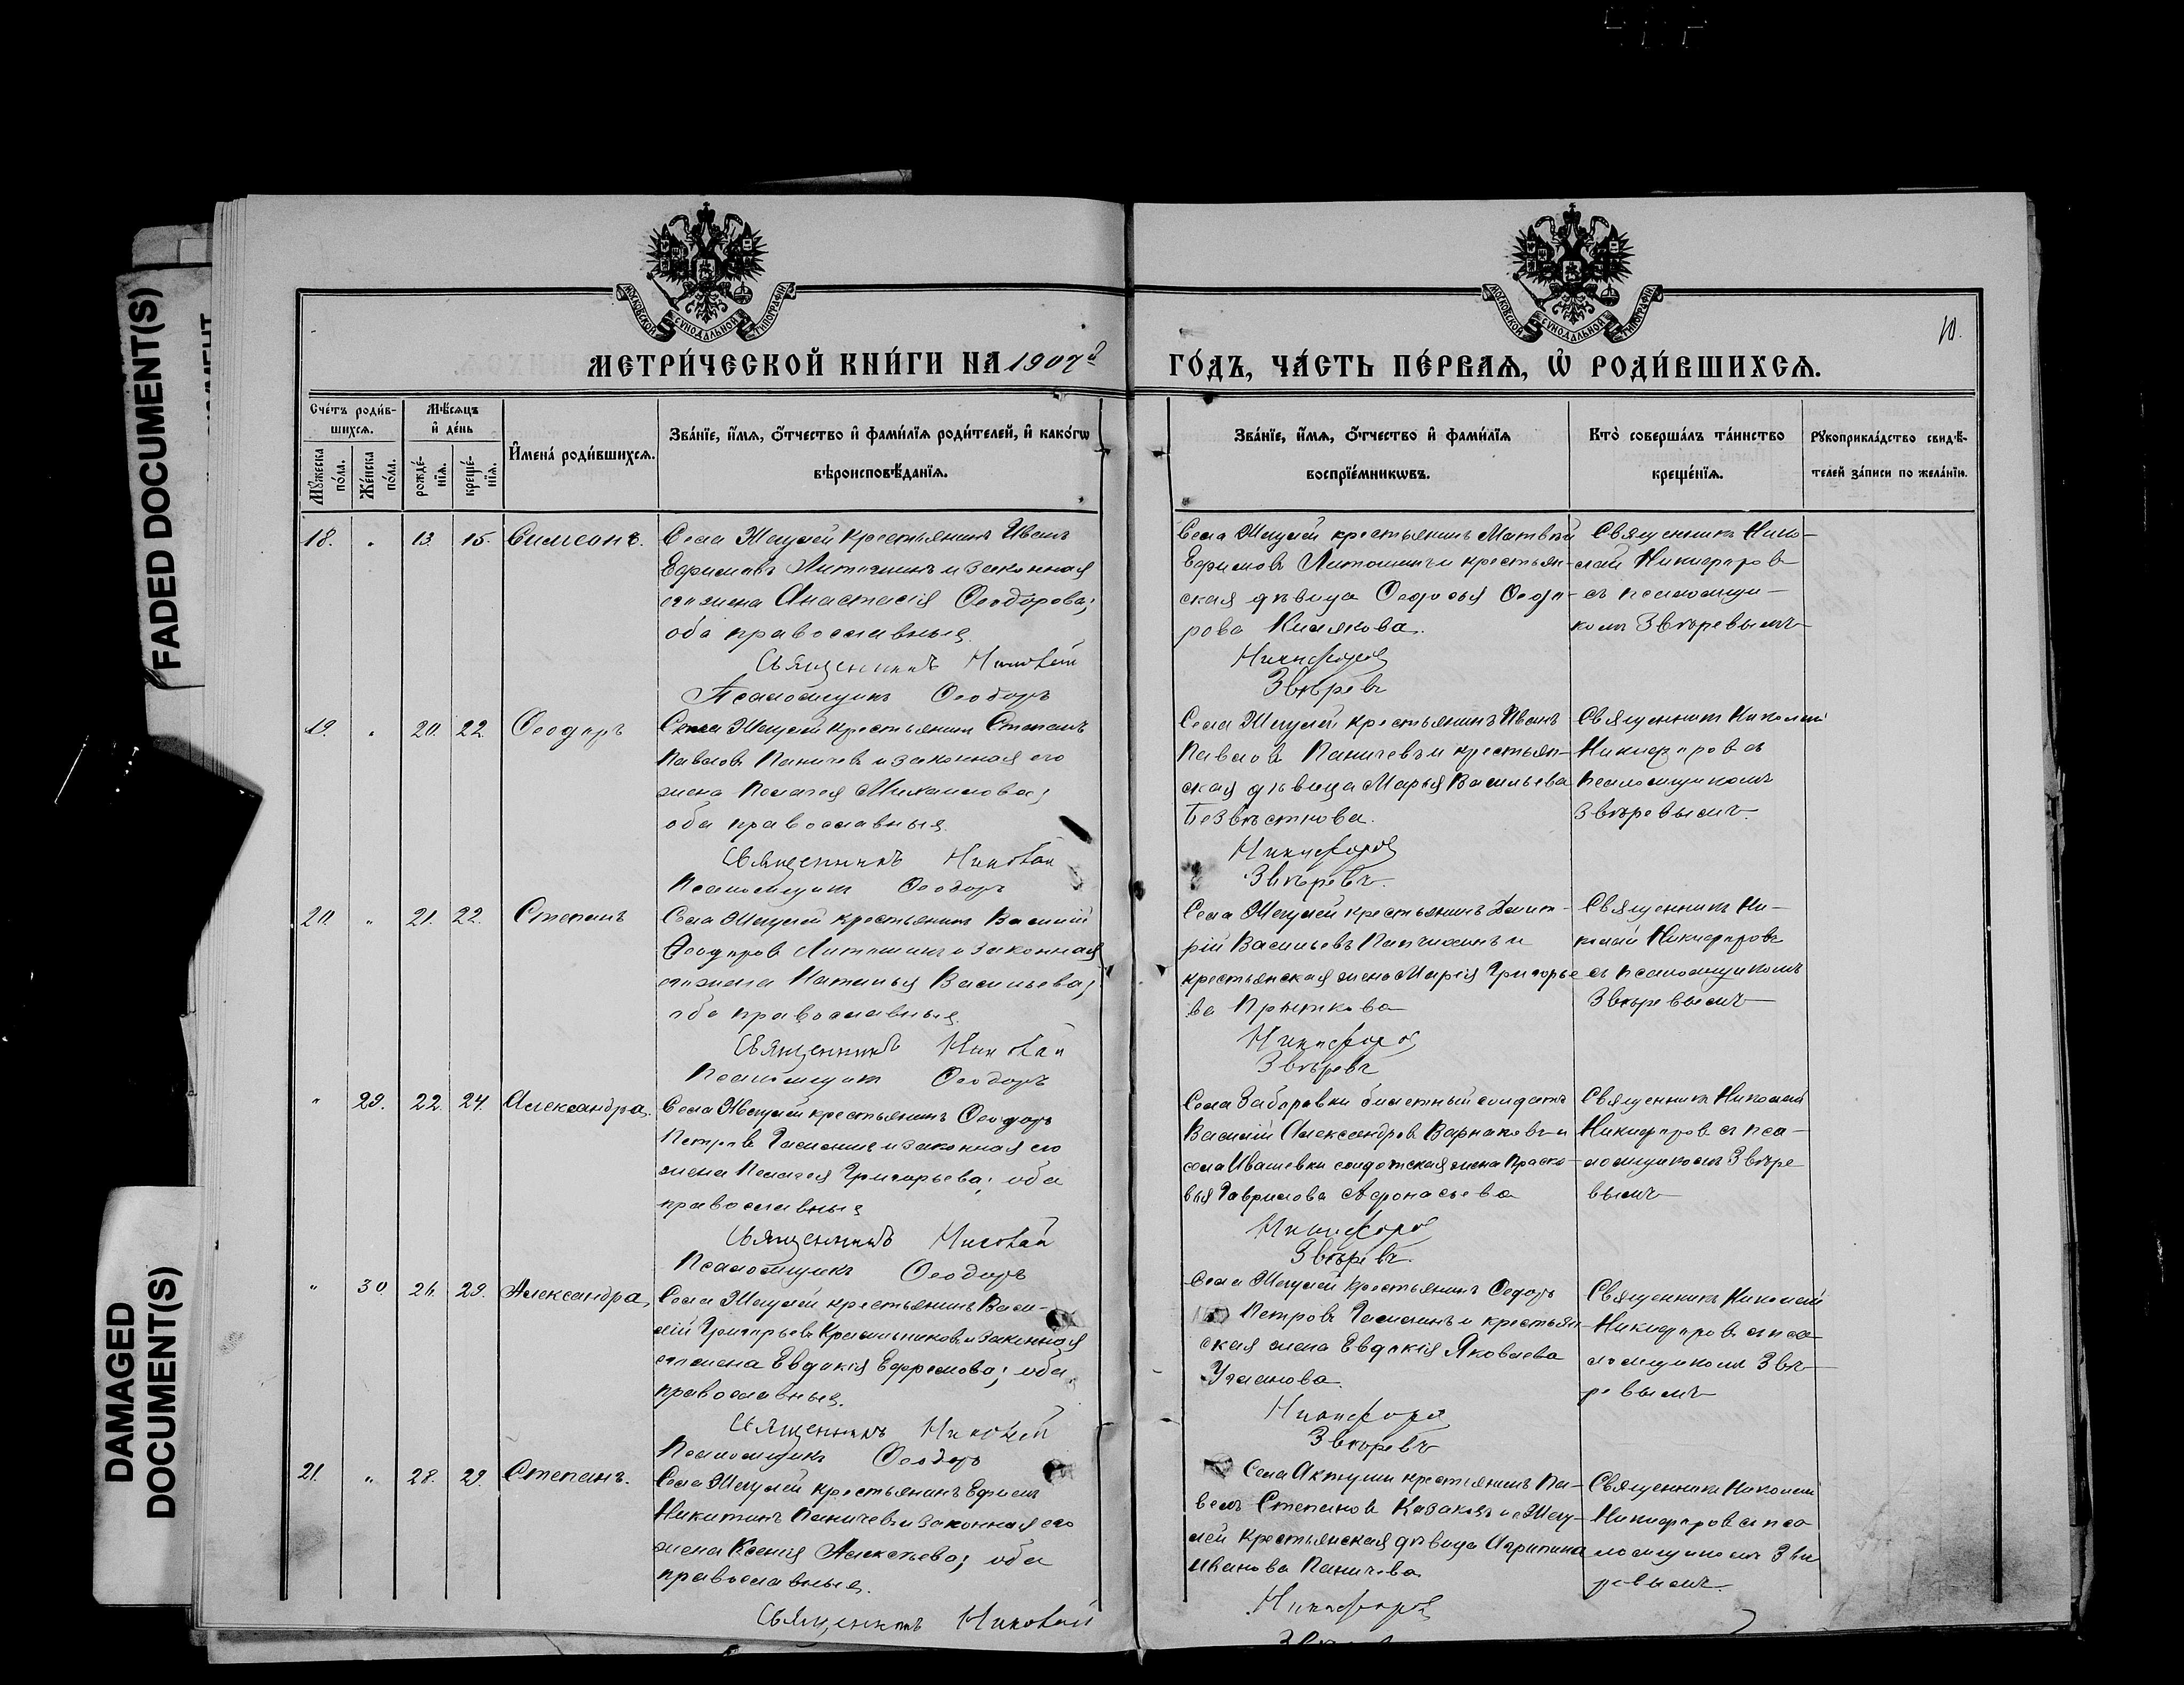 FADED DOCUMENT(S)
DAMAGED
DOCUMENT(S)
МОСКОВСКОЙ СѴНОДАЛЬНОЙ ТИПОГРАФІИ
МОСКОВСКОЙ СѴНОДАЛЬНОЙ ТИПОГРАФІИ
10.
МЕТРИ́ЧЕСКОЙ КНИ́ГИ НА 1907й
ГО́ДЪ, ЧА́СТЬ ПЕ́РВАѦ, Ѡ҆ РОДИ́ВШИХСѦ.
Сче́тъ роди́в-
шихсѧ.
Мꙋ́жеска по́ла.
Же́нска по́ла.
Мѣ́сѧцъ
и҆ де́нь
рожде́-
нїѧ.
креще́-
нїѧ.
И҆мена̀ роди́вшихсѧ.
Зва́нїе, и҆́мѧ, ѻ҆́тчество и҆ фами́лїѧ роди́телей, и҆ како́гѡ
вѣроисповѣ́данїѧ.
Зва́нїе, и҆́мѧ, ѻ҆́тчество и҆ фами́лїѧ
воспрїе́мникѡвъ.
Кто̀ соверша́лъ та́инство
креще́нїѧ.
Рꙋкоприкла́дство свидѣ́-
телей за́писи по жела́нїю.
18. " 13. 15. Симеонъ.
Села Жегулей крестьянинъ Иванъ
Ефимовъ Литошинъ и законная
его жена Анастасія Ѳеодорова;
оба православные.
Священникъ Николай
Псаломщикъ Ѳеодоръ
Села Жегулей крестьянинъ Матвѣй
Ефимовъ Литошинъ и крестьян-
ская дѣвица Ѳедосья Ѳедо-
рова Кислякова.
Никифоровъ
Звѣревъ
Священникъ Нико-
лай Никифоровъ
съ псаломщи-
комъ Звѣревымъ
19. " 20. 22. Ѳеодоръ
Села Жегулей крестьянинъ Степанъ
Павловъ Паничевъ и законная его
жена Пелагея Михаилова;
оба православные.
Священникъ Николай
Псаломщикъ Ѳеодоръ
Села Жегулей крестьянинъ Иванъ
Павловъ Паничевъ и крестьян-
ская дѣвица Марья Васильева
Безвѣстнова.
Никифоровъ
Звѣревъ.
Священникъ Николай
Никифоровъ съ
псаломщикомъ
Звѣревымъ.
20. " 21. 22. Степанъ
Села Жегулей крестьянинъ Василій
Ѳеодоровъ Литошинъ и законная
его жена Наталья Васильева;
оба православные.
Священникъ Николай
Псаломщикъ Ѳеодоръ
Села Жегулей крестьянинъ Димит-
рій Васильевъ и
крестьянская жена Марія Григорье-
ва Прыткова
Никифоровъ
Звѣревъ
Священникъ Ни-
колай Никифоровъ
съ псаломщикомъ
Звѣревымъ
" 29. 22. 24. Александра.
Села Жегулей крестьянинъ Ѳеодоръ
Петровъ и законная его
жена Пелагея Григорьева; оба
православные
Священникъ Николай
Псаломщикъ Ѳеодоръ
Села Заборовки билетный солдатъ
Василій Александровъ Варлаковъ и
села Ивашевки солдатская жена Праско-
вья Гаврилова Афонасьева
Никифоровъ
Звѣревъ.
Священникъ Николай
Никифоровъ съ пса-
ломщикомъ Звѣре-
вымъ
" 30. 26. 29. Александра,
Села Жегулей крестьянинъ Васи-
лій Григорьевъ Красильниковъ и законная
его жена Евдокія Ефремова; оба
православные.
Священникъ Николай
Псаломщикъ Ѳеодоръ
Села Жегулей крестьянинъ Ѳедоръ
Петровъ и крестьян-
ская жена Евдокія Яковлева
Никифоровъ
Звѣревъ
Священникъ Николай
Никифоровъ съ пса-
ломщикомъ Звѣ-
ревымъ
21. " 28. 29. Степанъ.
Села Жегулей крестьянинъ Ефимъ
Никитинъ Паничевъ и законная его
жена Ксенія Алексѣева; оба
православные.
Священникъ Николай
Села Актуши крестьянинъ Па-
велъ Степановъ Казаковъ и с. Жегу-
лей крестьянская дѣвица Агрипина
Иванова Паничева
Никифоровъ
Священникъ Николай
Никифоровъ съ пса-
ломщикомъ Звѣ-
ревымъ.